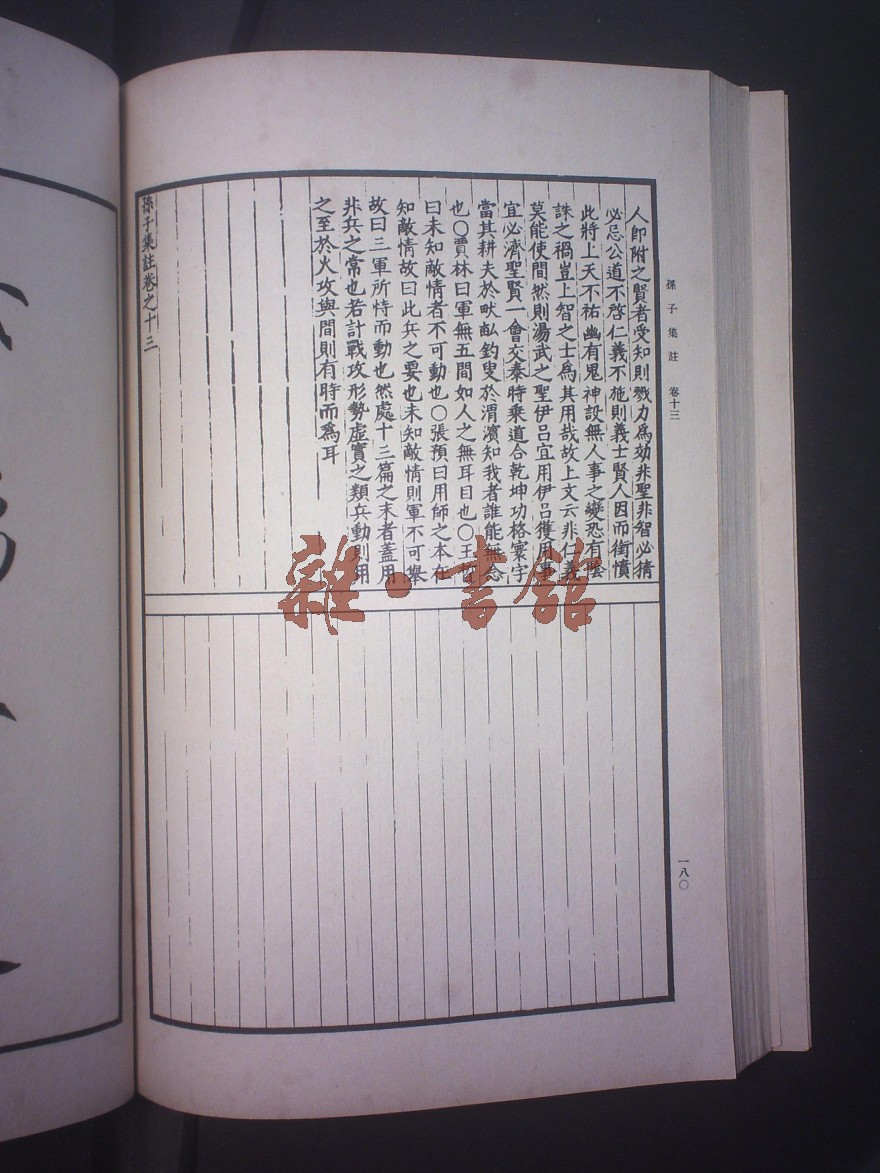 孫子集註 卷十三
人卽附之賢者受知則戮力爲効非聖非智必猜
必忌公道不啓仁義不施則義士賢人因而銜憤
此將上天不祐幽有鬼神設無人事之變恐有陰
誅之禍豈上智之士爲其用哉故上文云非仁義
莫能使間然則湯武之聖伊呂宜用伊呂獲用事
宜必濟聖賢一會交泰時乘道合乾坤功格寰宇
當其耕夫於畎畝釣叟於渭濱知我者誰能無念
也〇賈林曰軍無五間如人之無耳目也〇王晳
曰未知敵情者不可動也〇張預曰用師之本在
知敵情故曰此兵之要也未知敵情則軍不可舉
故曰三軍所恃而動也然處十三篇之末者蓋用
非兵之常也若計戰攻形勢虛實之類兵動則用
之至於火攻與間則有時而爲耳
孫子集註卷之十三
一八〇
雜·書館